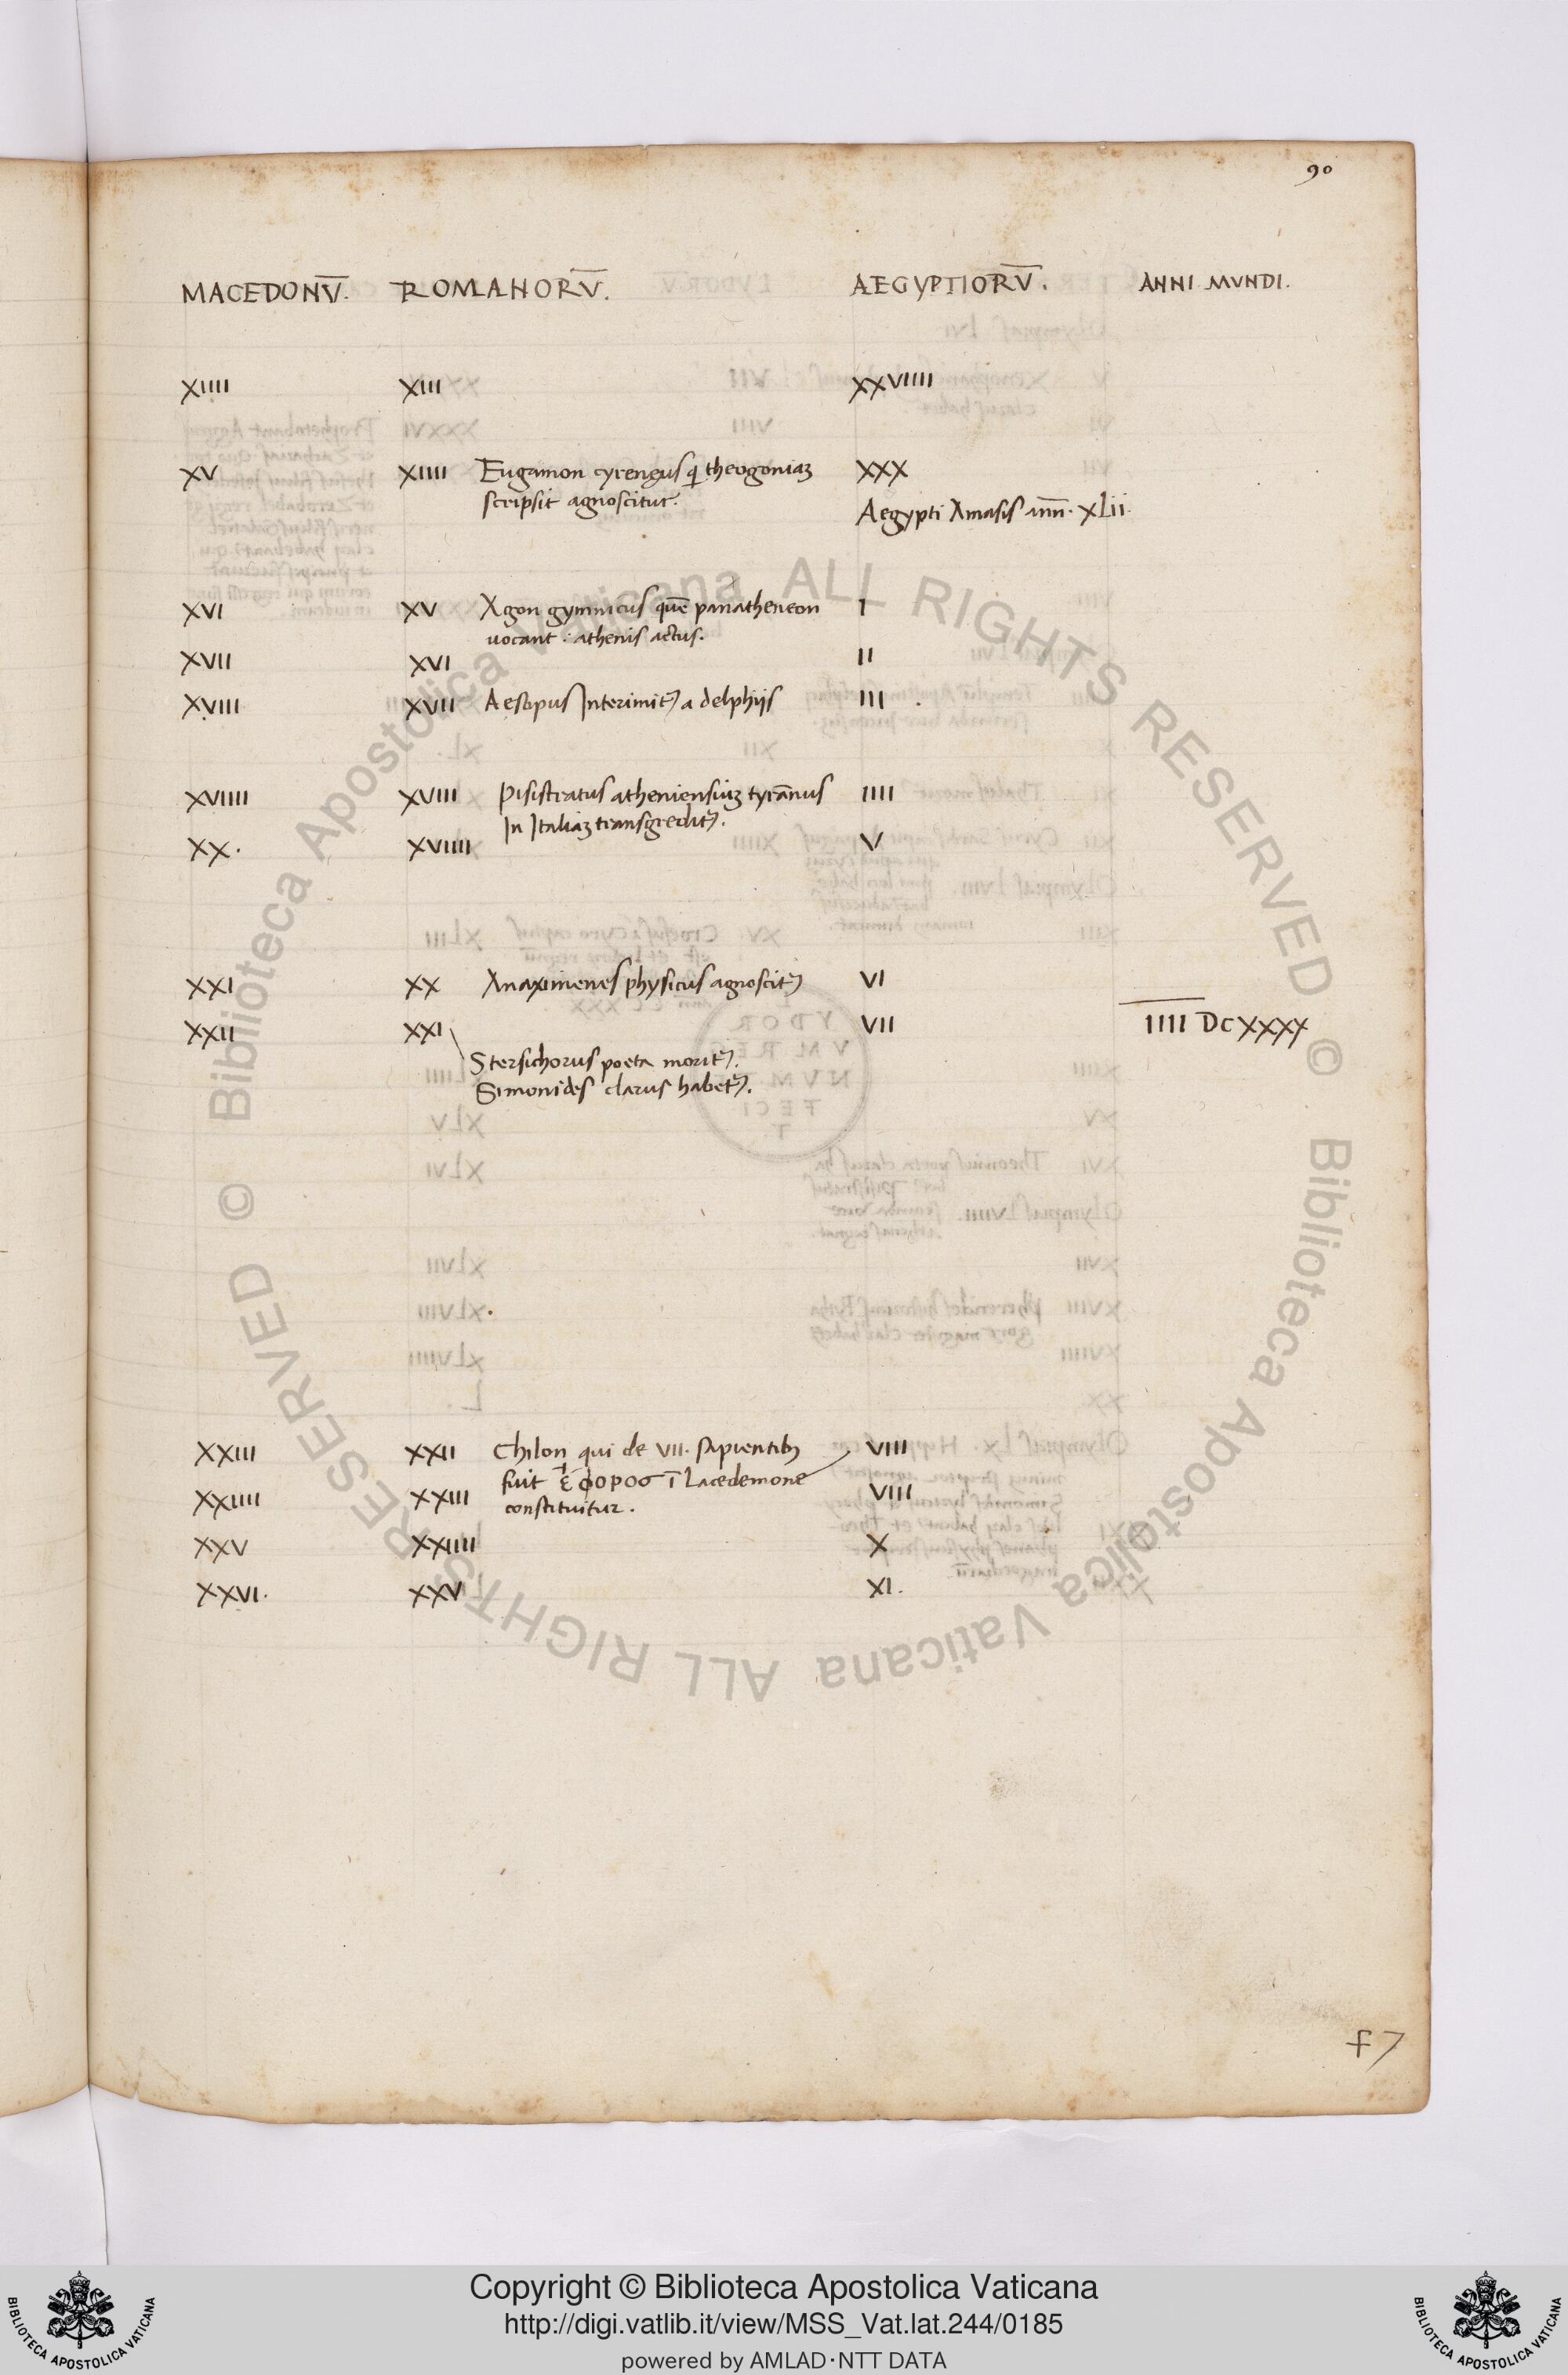 90
MACEDONV̄. ROMANORV̄. AEGYPTIORV̄. ANNI MVNDI.
XIIII XIII XXVIIII
XV XIIII Eugamon cyreneus q theogoniaʒ XXX
scripsit agnoscitur. Aegypti Amasis ann̄. XLii.
XVI XV Agon gymnicus quē panatheneon I
vocant. athenis actus.
XVII XVI II
XVIII XVII Aesopus Interimit᷑ a delphijs III
XVIIII XVIII Pisistratus atheniensiuʒ tyrānus IIII
In Italiaʒ transgredit᷑.
XX. XVIIII V
XXI XX Anaximenes physicus agnoscit᷑ VI
XXII XXI VII IIII DCXXXX
Stersichorus poeta morit᷑.
Simonides clarus habet᷑.
XXIII XXII Chilon qui de VII. sapientibʒ VIII
fuit ἐφοροσ ī Lacedemone
XXIIII XXIII constituitur. VIIII
XXV XXIIII X
XXVI. XXV XI.
f7
© Biblioteca Apostolica Vaticana ALL RIGHTS RESERVED
© Biblioteca Apostolica Vaticana ALL RIGHTS RESERVED
BIBLIOTECA APOSTOLICA VATICANA
Copyright © Biblioteca Apostolica Vaticana
http://digi.vatlib.it/view/MSS_Vat.lat.244/0185
powered by AMLAD·NTT DATA
BIBLIOTECA APOSTOLICA VATICANA